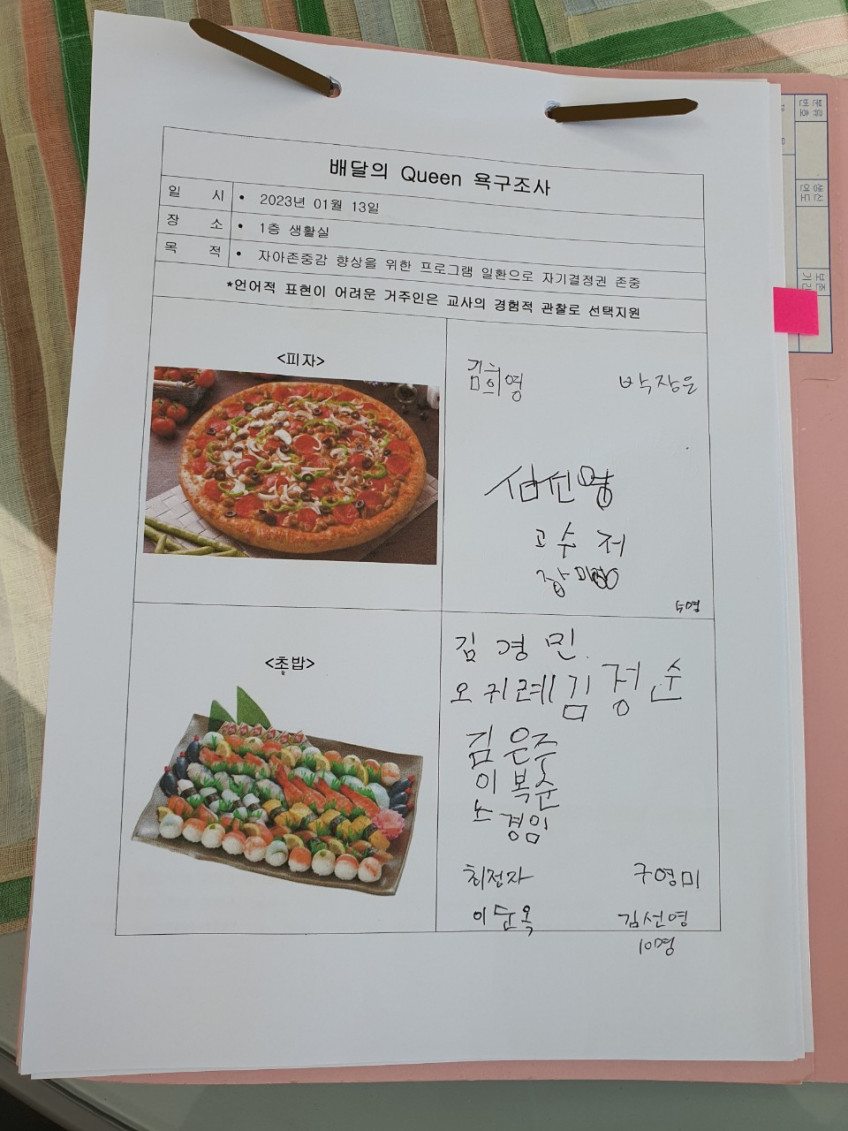 배달의 Queen 욕구조사
일 시 • 2023년 01월 13일
장 소 • 1층 생활실
목 적 • 자아존중감 향상을 위한 프로그램 일환으로 자기결정권 존중
*언어적 표현이 어려운 거주인은 교사의 경험적 관찰로 선택지원
<피자>
김희영 박장은
고수저
<초밥>
김경민
오귀례 김정순
김은주
이복순
노경임
최전자 구영미
이순옥 김선영
10명